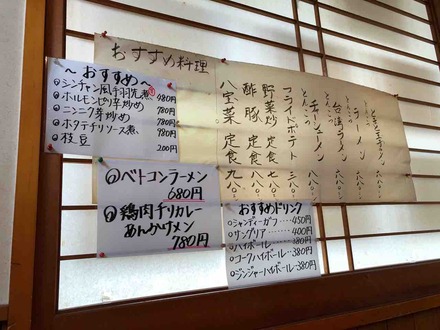 おすすめ料理
〜おすすめ〜
シンチャン風手羽先煮 480円
ホルモンピリ辛炒め 780円
ニンニク芽炒め 780円
ホタテチリソース煮 780円
枝豆 200円
②ベトコンラーメン
680円
②鶏肉チリカレー
あんかけメン
780円
おすすめドリンク
シャンディーガフ・・・・450円
サングリア・・・・400円
ハイボール・・・・380円
コークハイボール・・・380円
ジンジャーハイボール・・380円
とんこつ
ラーメン
とんこつ
台湾ラーメン
とんこつ
チャーシューメン
フライドポテト 三八〇
野菜炒め 定食
酢豚 定食
八宝菜 定食 九八〇